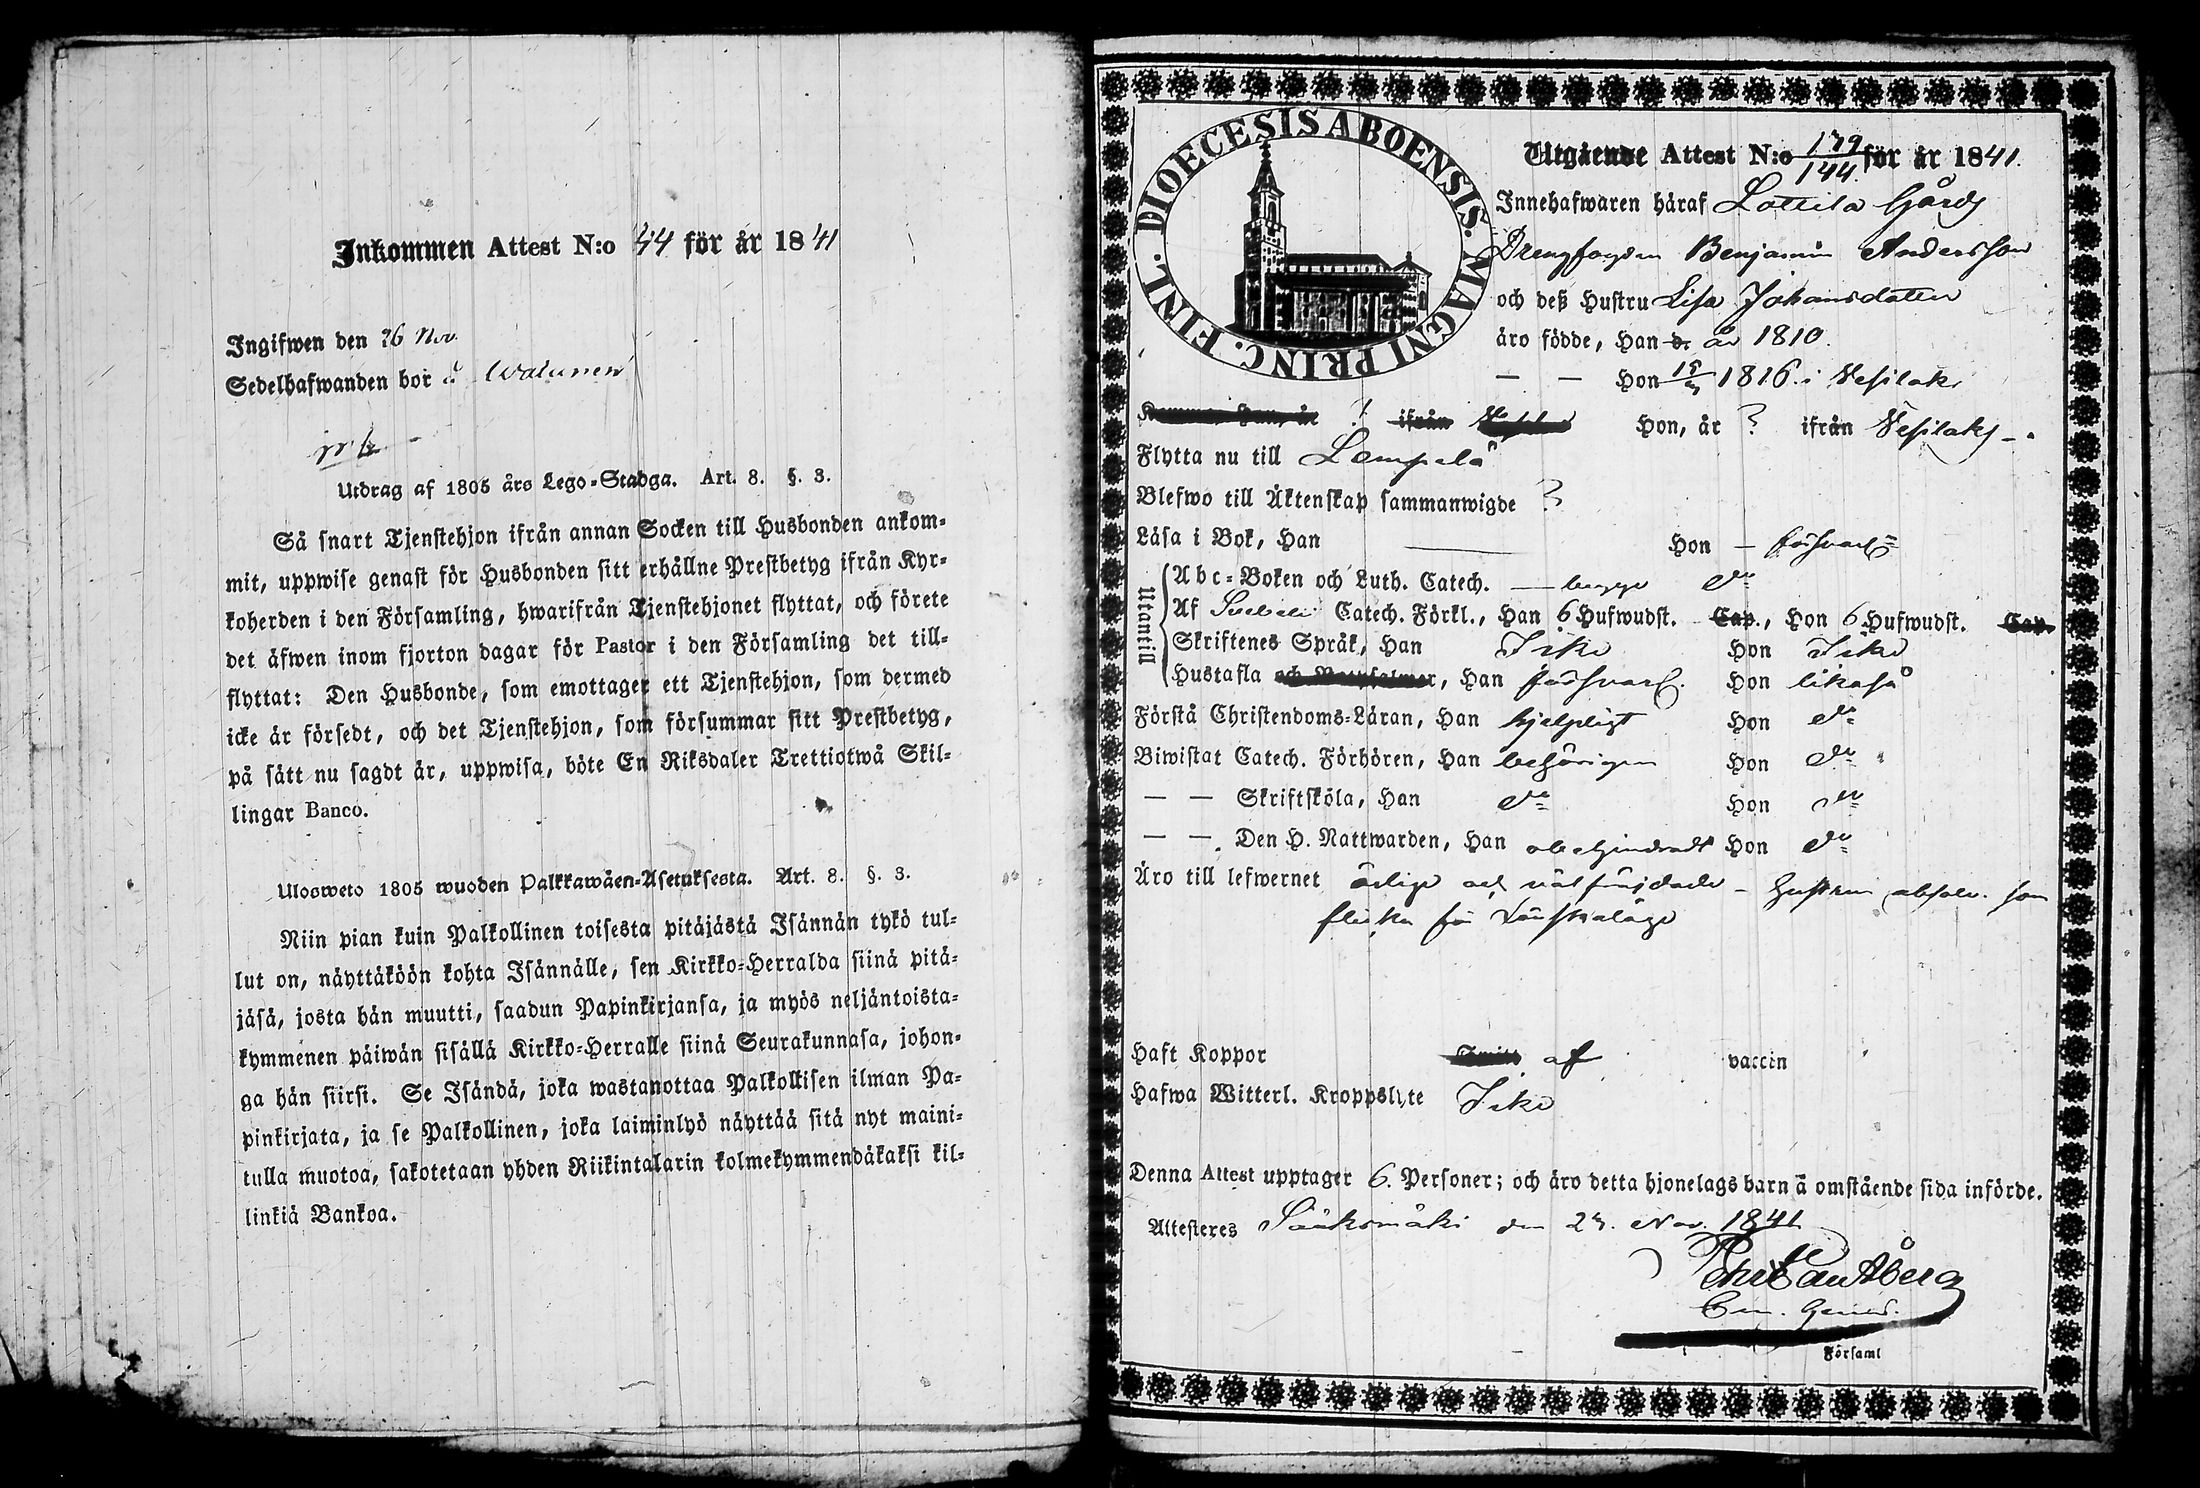 Inkommen Attest N:o 44 för år 1841
Ingifwen den 26 Nov.
Sedelhafwanden bor å
Utdrag af 1805 års Lego-Stadga. Art. 8. §. 3.
Så snart Tjenstehjon ifrån annan Socken till Husbonden ankom-
mit, uppwise genast för Husbonden sitt erhållne Prestbetyg ifrån Kyr-
koherden i den Församling, hwarifrån Tjenstehjonet flyttat, och förete
det äfwen inom fjorton dagar för Pastor i den Församling det till-
flyttat: Den Husbonde, som emottager ett Tjenstehjon, som dermed
icke är försedt, och det Tjenstehjon, som försummar sitt Prestbetyg,
på sätt nu sagdt är, uppwisa, böte En Riksdaler Trettiotwå Skil-
lingar Banco.
Ulosweto 1805 wuoden Palkkawäen-Asetuksesta. Art. 8. §. 3.
Niin pian kuin Palkollinen toisesta pitäjästä Isännän tykö tul-
lut on, näyttäköön kohta Isännälle, sen Kirkko-Herralda siinä pitä-
jäsä, josta hän muutti, saadun Papinkirjansa, ja myös neljäntoista-
kymmenen päiwän sisällä Kirkko-Herralle siinä Seurakunnasa, johon-
ga hän siirsi. Se Isändä, joka wastanottaa Palkollisen ilman Pa-
pinkirjata, ja se Palkollinen, joka laiminlyö näyttää sitä nyt maini-
tulla muotoa, sakotetaan yhden Riikintalarin kolmekymmendäkaksi kil-
linkiä Bankoa.
DIOECESIS ABOENSIS. MAGNI PRINC. FINL.
Utgående Attest N:o 179/144. för år 1841.
Innehafwaren häraf Lottila Gårds
Drengfogden Benjamin Andersson
och deß Hustru Lisa Johansdotter
äro födde, Han d. år 1810.
— — Hon 1816. i Vesilaks
? ifrån Hon, år ? ifrån Vesilaks
Flytta nu till Lempelä
Blefwo till Äktenskap sammanwigde ?
Läsa i Bok, Han — Hon — försvarl.
Utantill
Abc-Boken och Luth. Catech. — begge do
Af Svebelii Catech. Förkl., Han 6 Hufwudst. Cap., Hon 6 Hufwudst. Cap.
Skriftenes Språk, Han Icke Hon Icke
Hustafla och, Han försvarl. Hon likaså
Förstå Christendoms-Läran, Han hjelpligt Hon do
Biwistat Catech. Förhören, Han behörigen Hon do
— — Skriftskola, Han do Hon do
— — Den H. Nattwarden, Han obehindradt Hon do
Äro till lefwernet ärlige och väl frejdade — hustrun absolv. som
flicka för Lönskaläge
Haft Koppor af vaccin
Hafwa Witterl. Kroppslyte Icke
Denna Attest upptager 6. Personer; och äro detta hjonelags barn å omstående sida införde.
Attesteres Sääksmäki den Nov. 1841
Församl